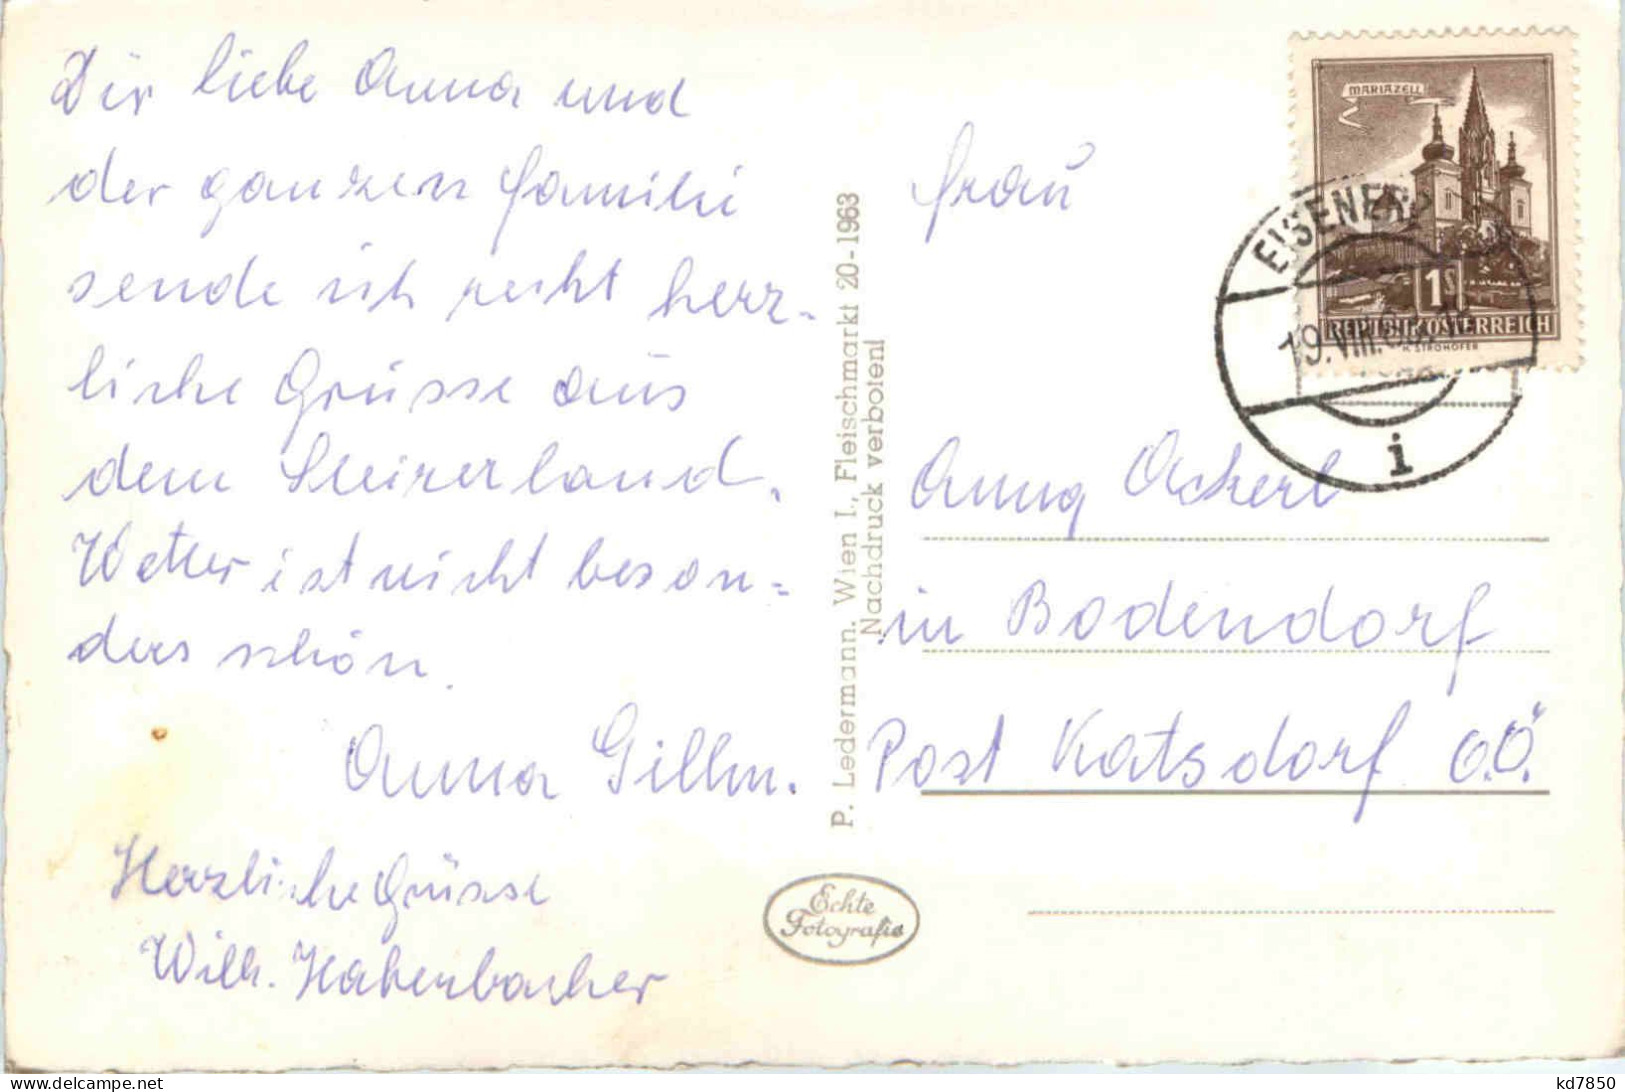 Dir liebe Anna und
der ganzen Familie
sende ich recht herz-
liche Grüsse aus
dem Steirerland.
Wetter ist nicht beson=
ders schön.
Anna Gillm.
Herzliche Grüsse
Wilh. Habenbacher
P. Ledermann. Wien I., Fleischmarkt 20-1963
Nachdruck verboten!
Echte
Fotografie
MARIAZELL
1S
REPUBLIK ÖSTERREICH
H. STROHOFER
EISENERZ
19.VIII.63
i
Frau
Anna Ackerl
in Bodendorf
Post Katsdorf O.Ö.
kd7850